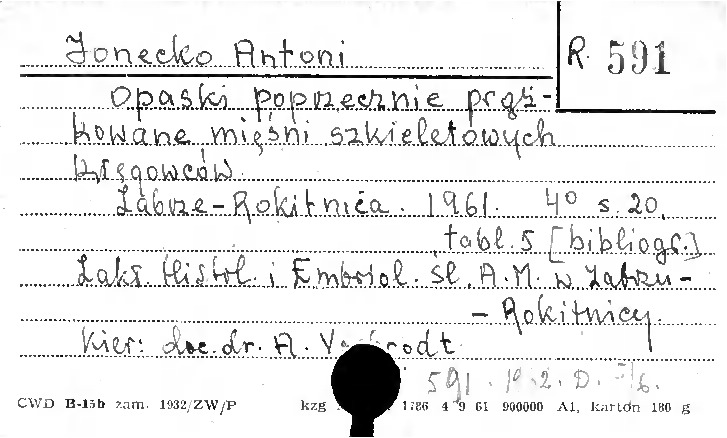 Jonecko Antoni
R. 591
Opaski poprzecznie prąż-
kowane mięśni szkieletowych
kręgowców.
Zabrze-Rokitnica. 1961. 4° s. 20,
tabl. 5 [bibliogr.]
Zakł. Histol. i Embriol. Śl. A.M. w Zabrzu-
- Rokitnicy.
Kier: doc. dr. A.
591.
CWD B-15b zam. 1932/ZW/P kzg 1786 4 9 61 900000 A1, karton 180 g